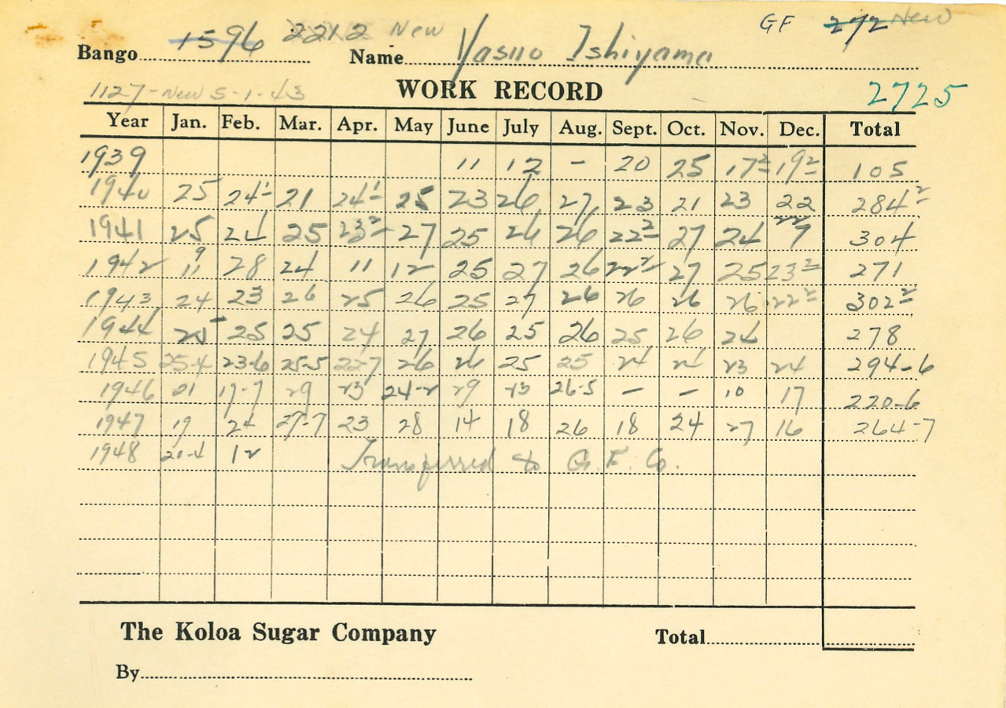 Bango 1596 2212 New Name Yasuo Ishiyama GF 272 New
1127-New 5-1-43 WORK RECORD 2725
Year Jan. Feb. Mar. Apr. May June July Aug. Sept. Oct. Nov. Dec. Total
1939 11 12 - 20 25 17² 19² 105
1940 25 24¹ 21 24¹ 25 23 26 27 23 21 23 22 284²
1941 25 24 25 23² 27 25 26 26 22² 27 24 7 304
1942 11 28 24 11 12 25 27 26 22² 27 25 23² 271
1943 24 23 26 25 26 25 27 26 26 26 26 22² 302²
1944 25 25 25 24 27 26 25 26 25 26 24 278
1945 25-4 23-6 25-5 22-7 26 26 25 25 24 24 23 24 294-6
1946 21 17-7 29 23 24-2 29 23 26-5 - - 10 17 220-6
1947 19 24 27-7 23 28 14 18 26 18 24 27 16 264-7
1948 21-4 12 Transferred to G. F. Co.
The Koloa Sugar Company Total
By